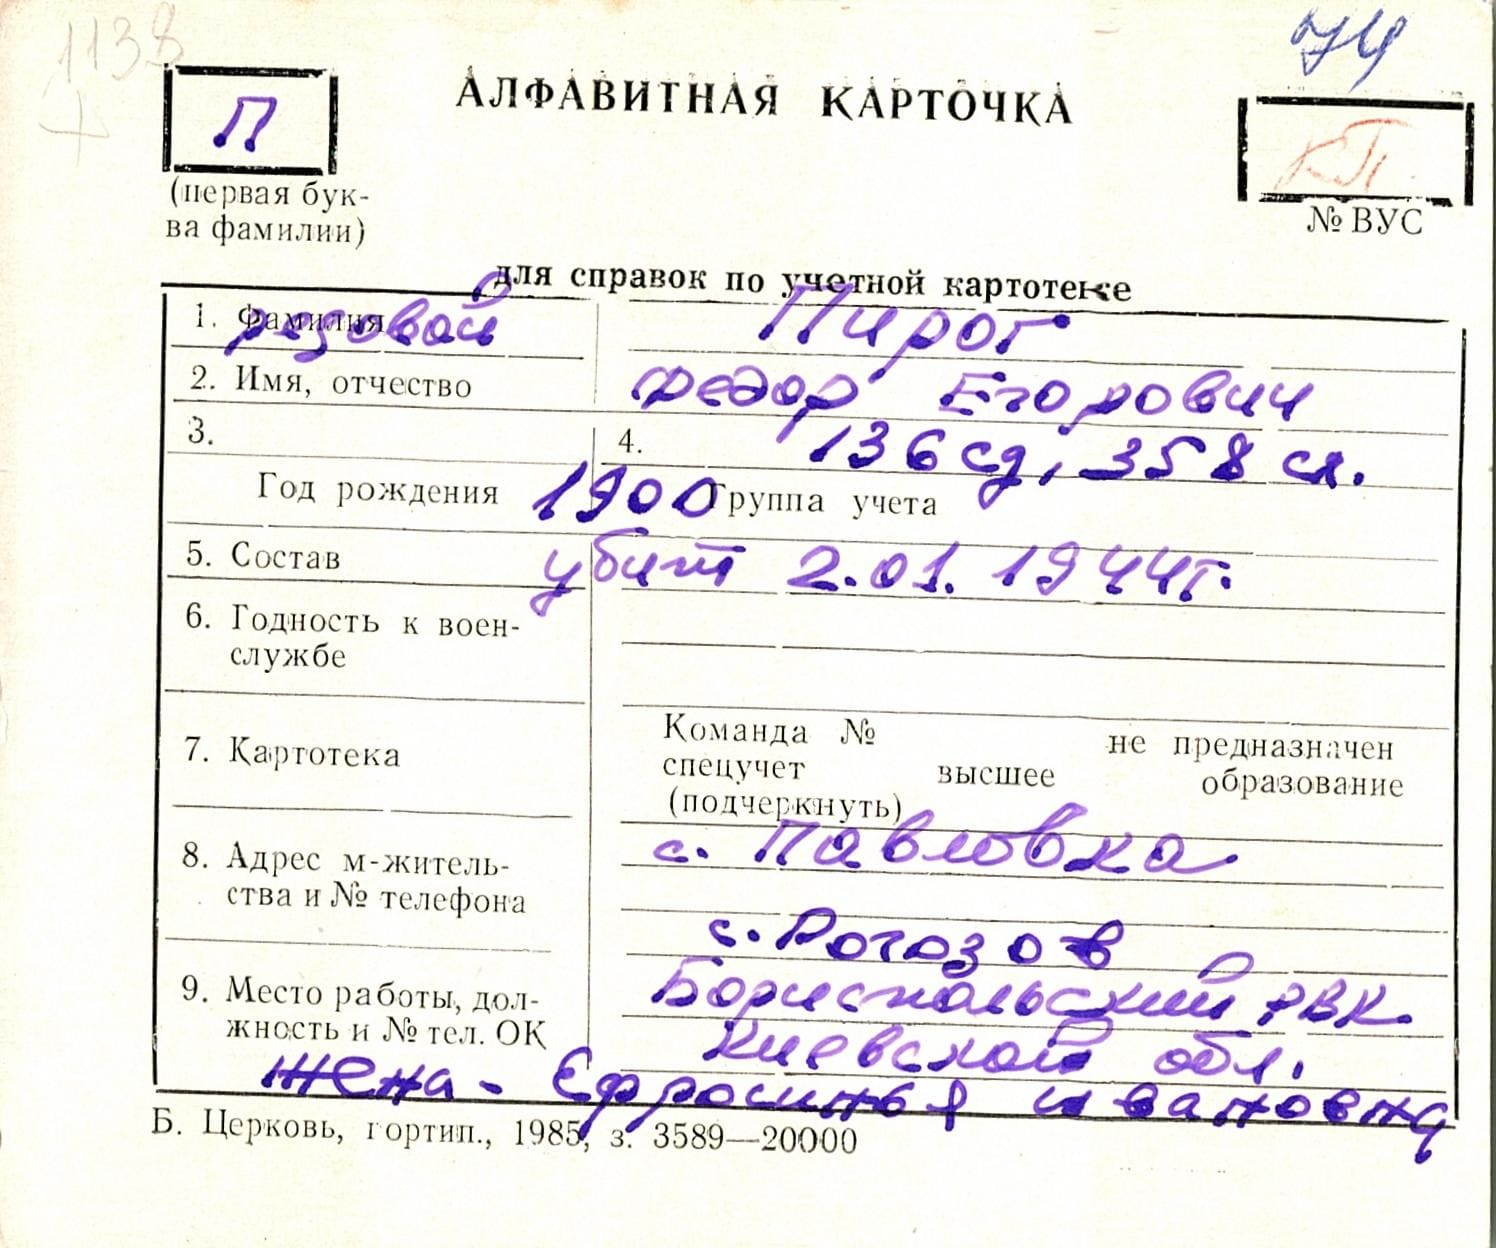 1138
74
П
АЛФАВИТНАЯ КАРТОЧКА
КП
(первая бук-
ва фамилии)
№ ВУС
для справок по учетной картотеке
1. Фамилия
рядовой
Пирог
2. Имя, отчество
Федор Егорович
3.
4.
136 сд, 358 сп.
Год рождения 1900
Группа учета
5. Состав
убит 2.01.1944г.
6. Годность к воен-
службе
7. Картотека
Команда № не предназначен
спецучет высшее образование
(подчеркнуть)
8. Адрес м-житель-
ства и № телефона
с. Павловка
с. Рогозов
9. Место работы, дол-
жность и № тел. ОК
Бориспольский РВК
Киевской обл.
жена - Ефросинья Ивановна
Б. Церковь, гортип., 1985, з. 3589—20000